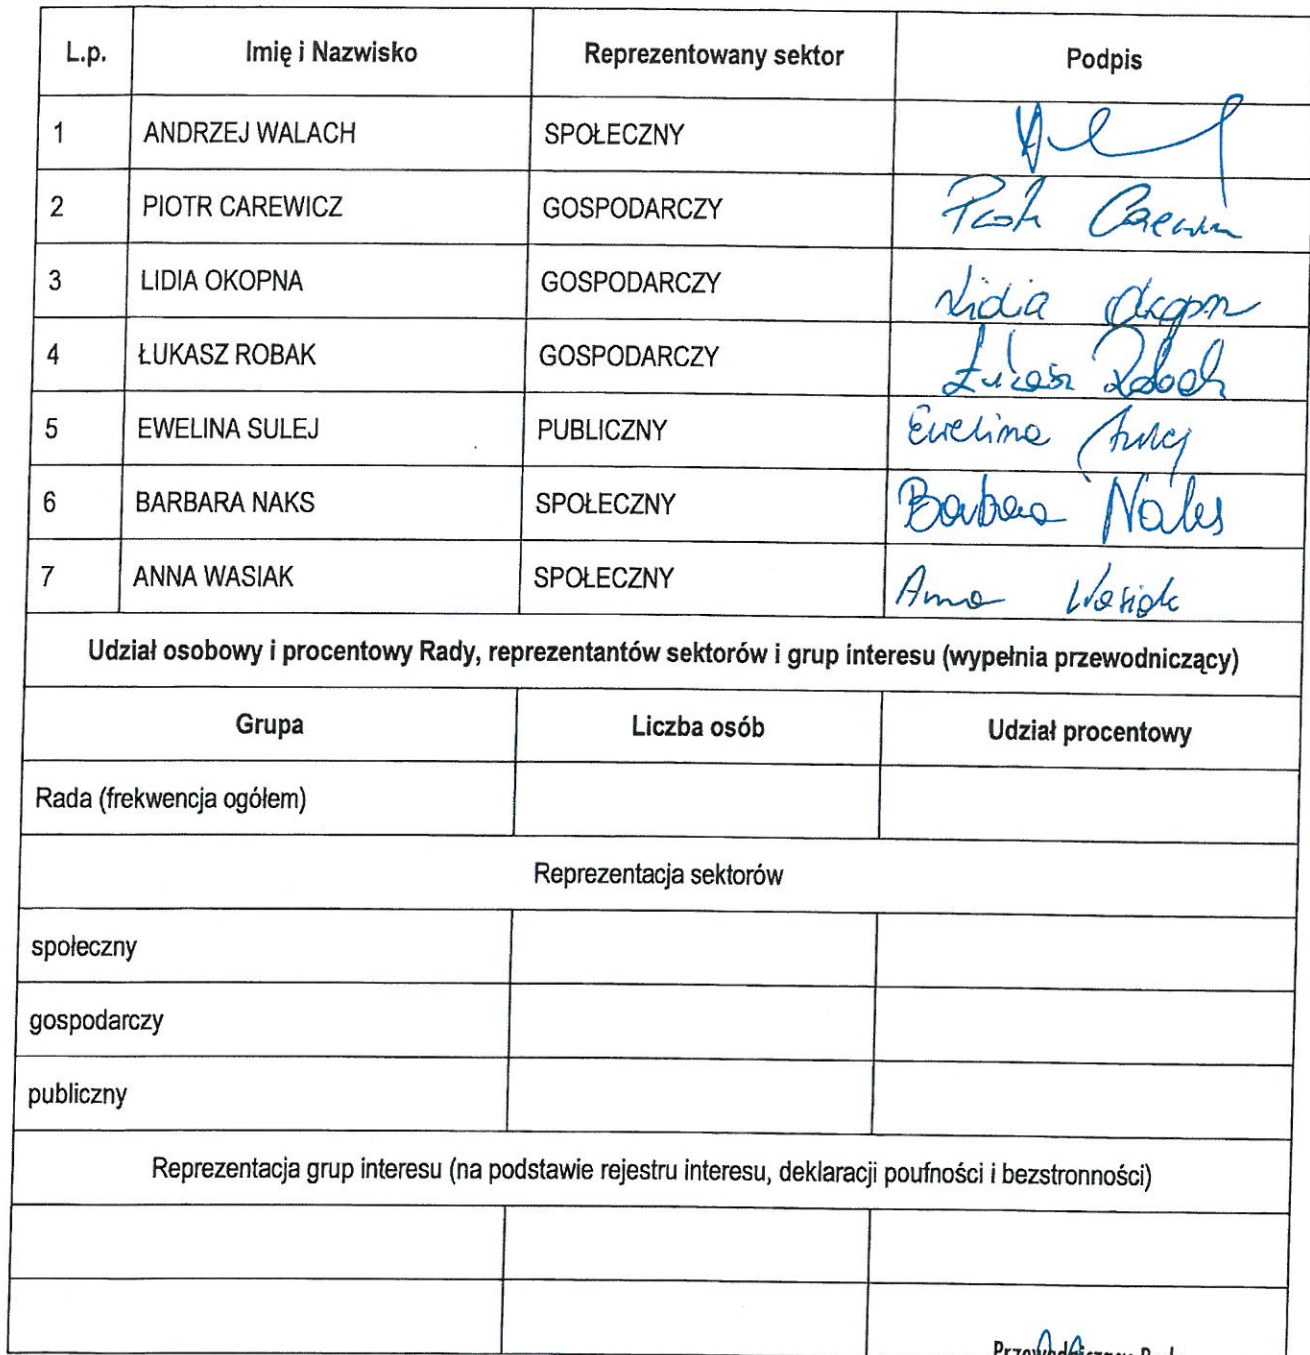 L.p. Imię i Nazwisko Reprezentowany sektor Podpis
1 ANDRZEJ WALACH SPOŁECZNY
2 PIOTR CAREWICZ GOSPODARCZY Piotr Carewicz
3 LIDIA OKOPNA GOSPODARCZY Lidia Okopna
4 ŁUKASZ ROBAK GOSPODARCZY Łukasz Robak
5 EWELINA SULEJ PUBLICZNY Ewelina Sulej
6 BARBARA NAKS SPOŁECZNY Barbara Naks
7 ANNA WASIAK SPOŁECZNY Anna Wasiak
Udział osobowy i procentowy Rady, reprezentantów sektorów i grup interesu (wypełnia przewodniczący)
Grupa Liczba osób Udział procentowy
Rada (frekwencja ogółem)
Reprezentacja sektorów
społeczny
gospodarczy
publiczny
Reprezentacja grup interesu (na podstawie rejestru interesu, deklaracji poufności i bezstronności)
Przewodniczący Rady